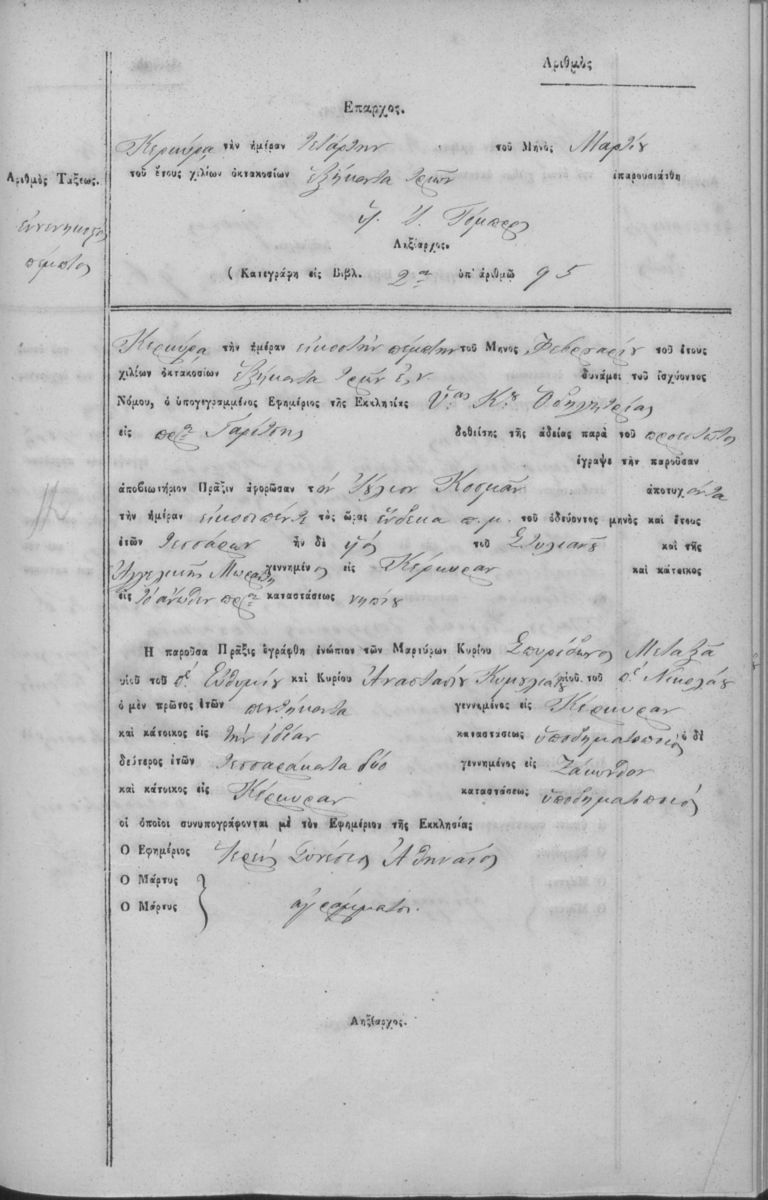 Αριθμὸς
Επαρχος.
Κερκύρᾳ τὴν ἡμέραν τετάρτην τοῦ Μηνὸς Μαρτίου
Αριθμὸς Τάξεως.
τοῦ ἔτους χιλίων ὀκτακοσίων ἑξήκοντα τριῶν ἐπαρουσιάσθη
ἐννενηκοστὸς
πέμπτος
Ληξίαρχος.
( Κατεγράφη εἰς Βιβλ. 2ον ὑπ' ἀριθμῶ 95
Κερκύρᾳ τὴν ἡμέραν εἰκοστὴν πέμπτην τοῦ Μηνος Φεβρουαρίου τοῦ ἔτους
χιλίων ὀκτακοσίων ἑξήκοντα τριῶν δυνάμει τοῦ ἰσχύοντος
Νόμου, ὁ ὑπογεγραμμένος Ἐφημέριος τῆς Εκκλησίας Ὑ.ας Κ.ου Ὁδηγητρίας
εἰς προ. Γαρίτσης δοθείσης τῆς ἀδείας παρὰ τοῦ προεστῶτος
ἔγραψε τὴν παροῦσαν
ἀποβιωτήριον Πρᾶξιν ἀφορῶσαν τόν Κοσμᾶν ἀποτυχόντα
τὴν ἡμέραν εἰκοσιπέντε τὰς ὥρας ἕνδεκα π.μ. τοῦ ὁδεύοντος μηνὸς καὶ ἔτους
ἐτῶν τεσσάρων ἦν δὲ υἱός τοῦ Στυλιανοῦ καὶ τῆς
Ἀγγελικῆς γεννημένος εἰς Κέρκυραν καὶ κάτοικος
εἰς τὸ ἄνωθεν προ. καταστάσεως νηπίου
Η παροῦσα Πρᾶξις ἐγράφθη ἐνώπιον τῶν Μαρτύρων Κυρίου Σπυρίδωνος Μεταξᾶ
υἱοῦ τοῦ π.ὲ Εὐθυμίου καὶ Κυρίου Ἀναστασίου υἱοῦ. τοῦ π.ὲ Νικολάου
ὁ μὲν πρῶτος ἐτῶν πεντήκοντα γεννημένος εἰς Κέρκυραν
καὶ κάτοικος εἰς τὴν ἰδίαν καταστάσεως ὑποδηματοποιός ὁ δὲ
δεύτερος ἐτῶν τεσσαράκοντα δύο γεννημένος εἰς Ζάκυνθον
καὶ κάτοικος εἰς Κέρκυραν καταστάσεως ὑποδηματοποιός
οἱ ὁποῖοι συνυπογράφονται μὲ τὸν Εφημέριον τῆς Εκκλησίας
Ο Εφημέριος Ἱερεὺς Συνέσιος Ἀθηναῖος
Ο Μάρτυς
Ο Μάρτυς ἀγράμματοι.
Ληξίαρχος.